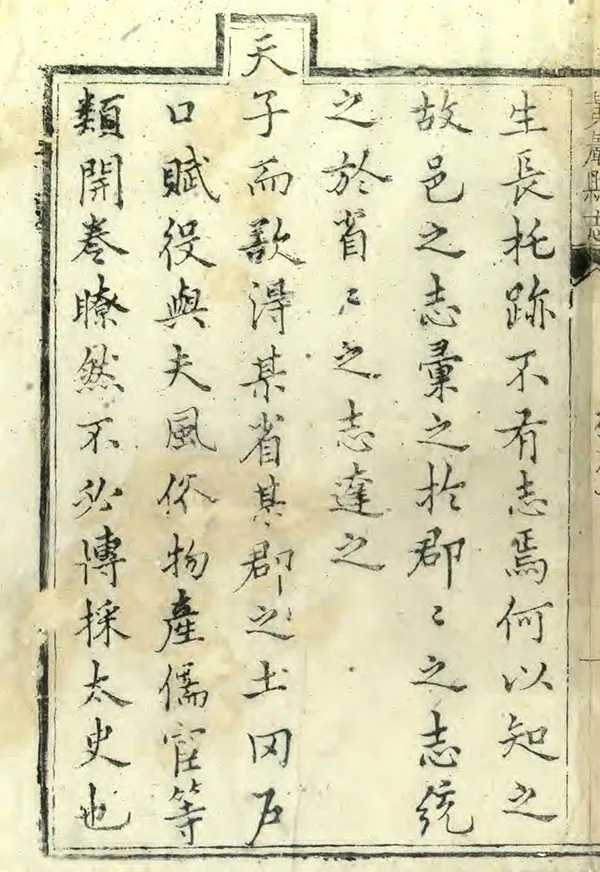 黃巖縣志
生長托跡不有志焉何以知之
故邑之志彙之於郡〻之志統
之於省〻之志達之
天子而欲得某省某郡之土田戶
口賦役與夫風俗物產儒宦等
類開卷瞭然不必博採太史也